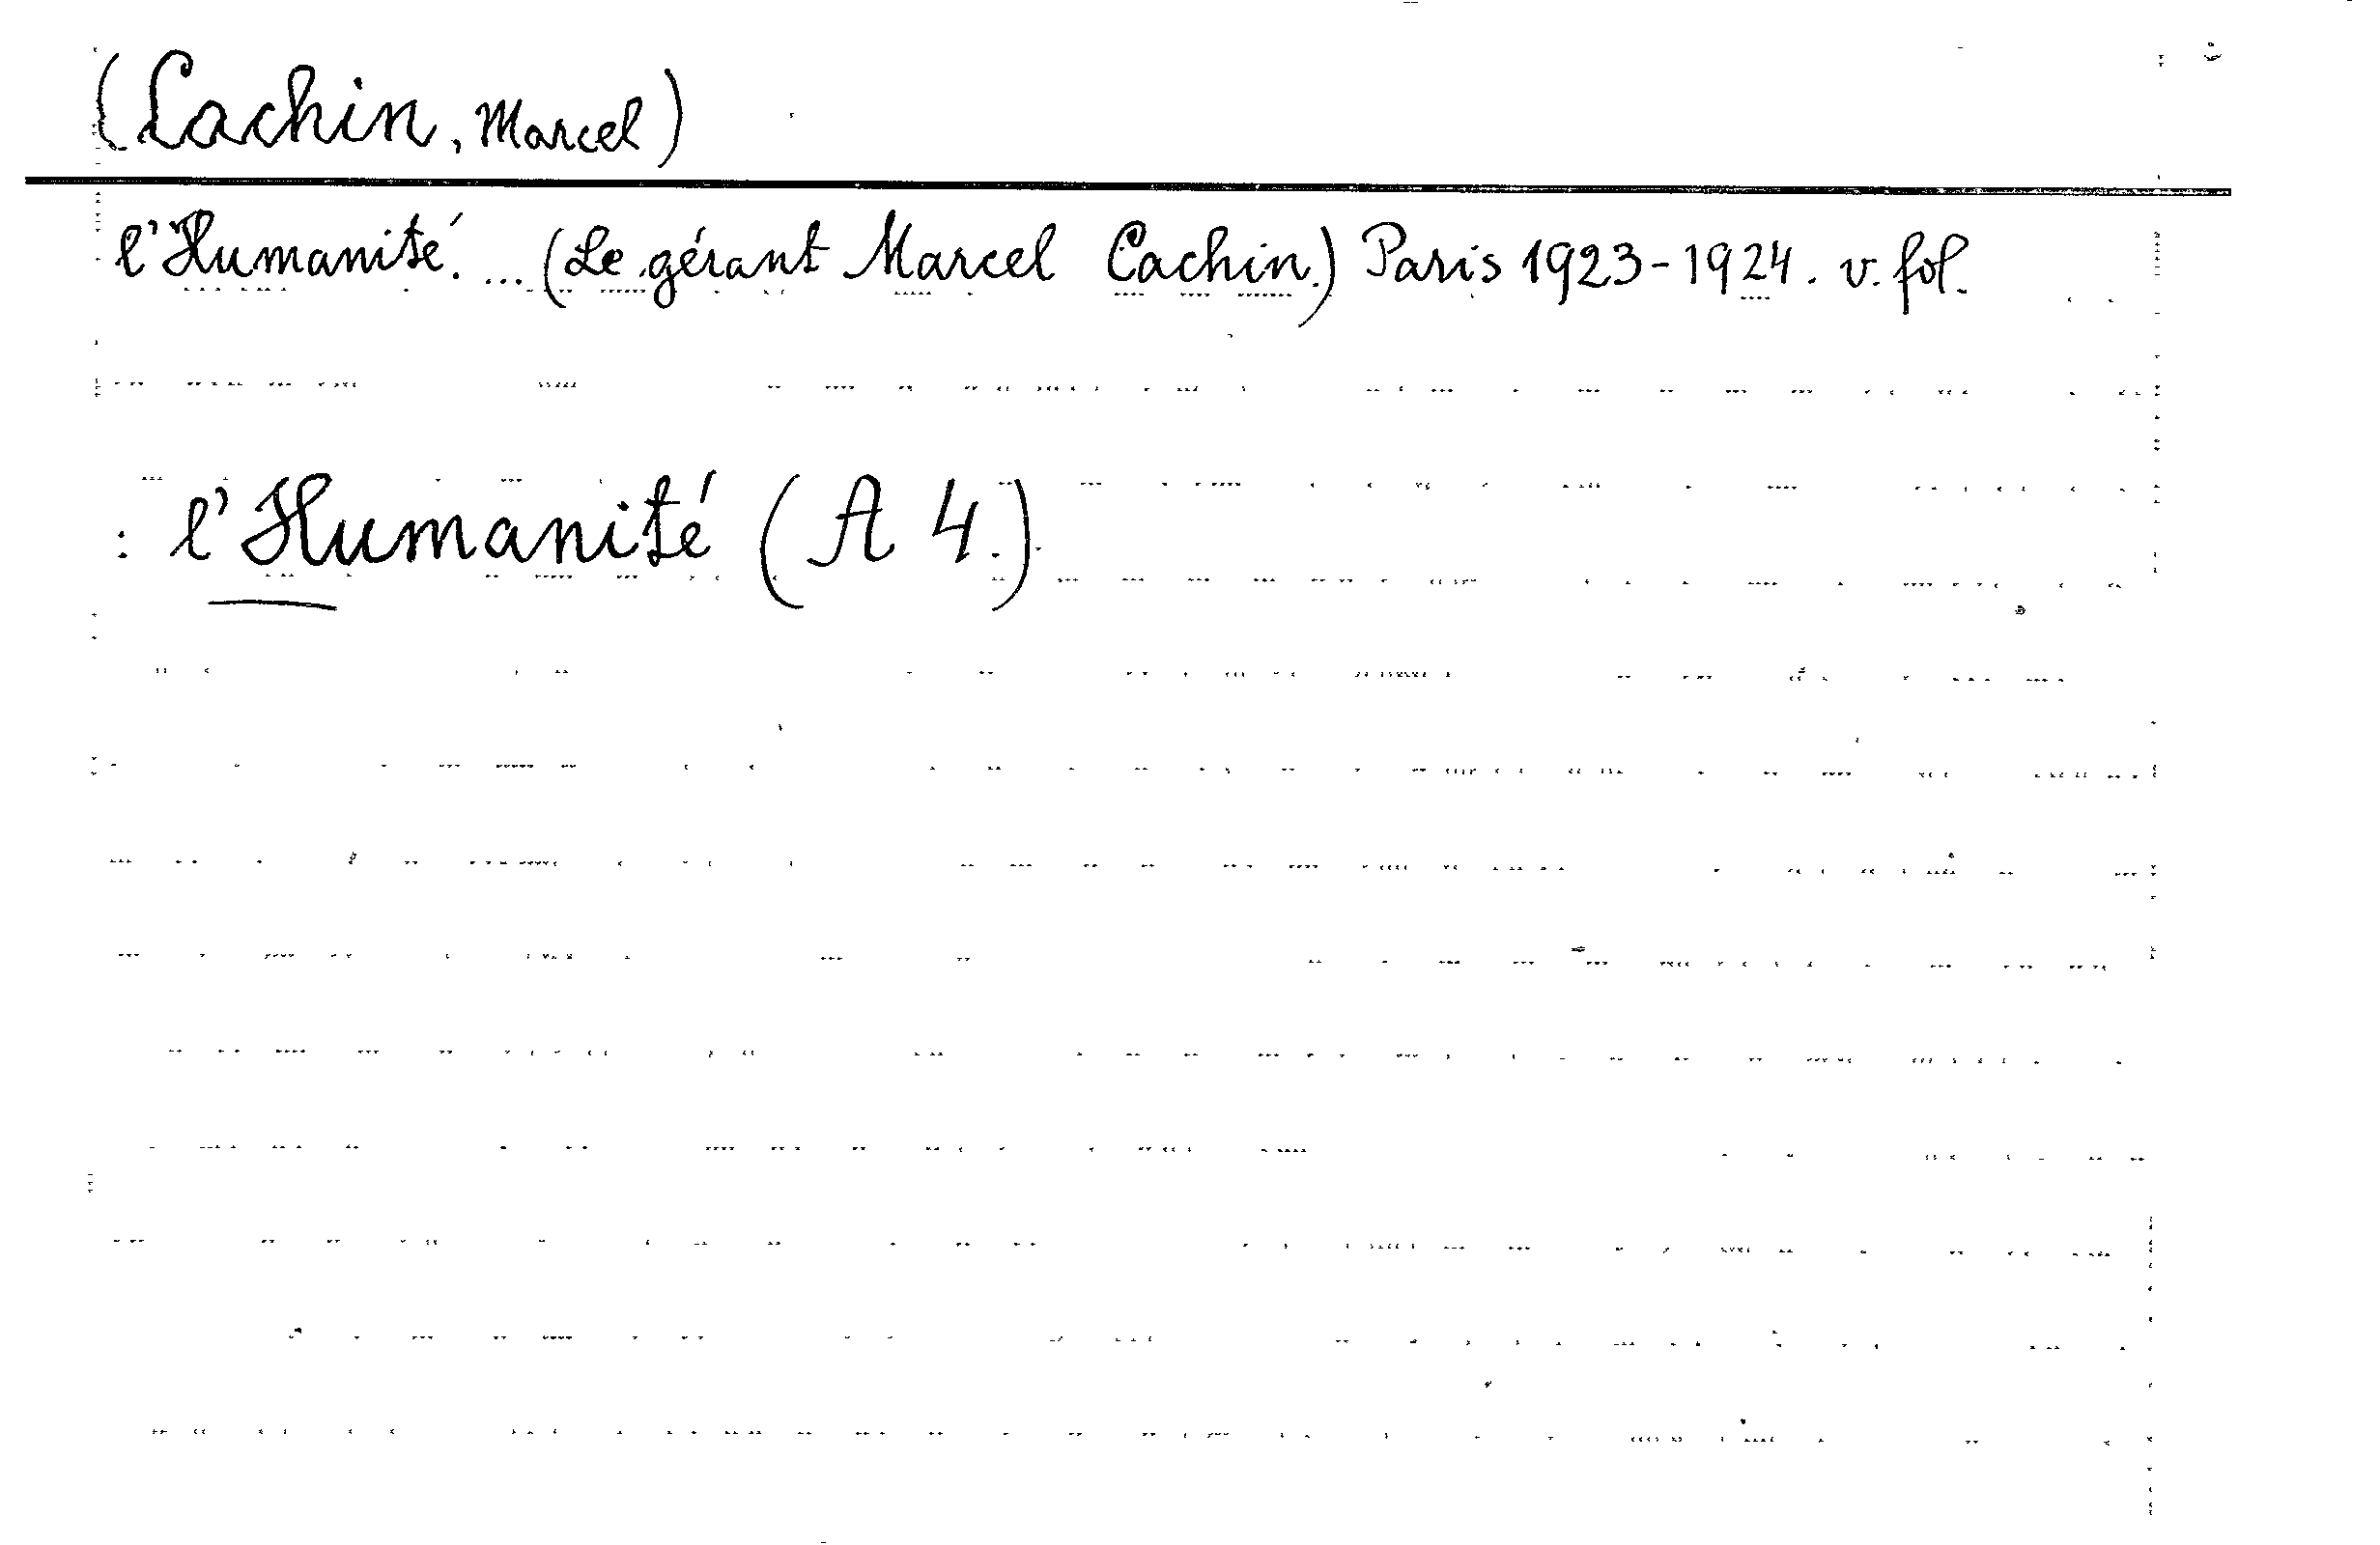 (Cachin, Marcel)
l'Humanité. ... (Le gérant Marcel Cachin.) Paris 1923-1924. v. fol.
: l'Humanité (A 4.)